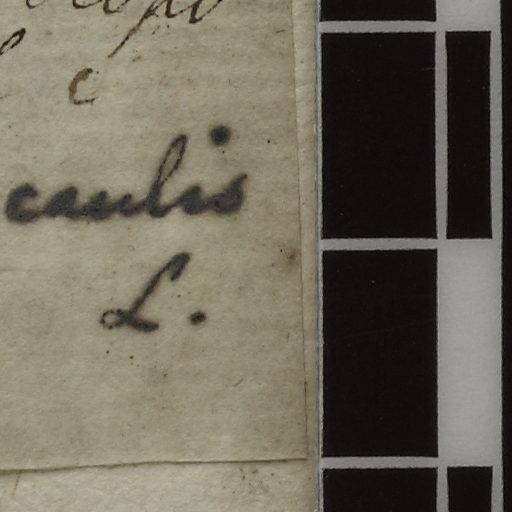 c
caulis
L.